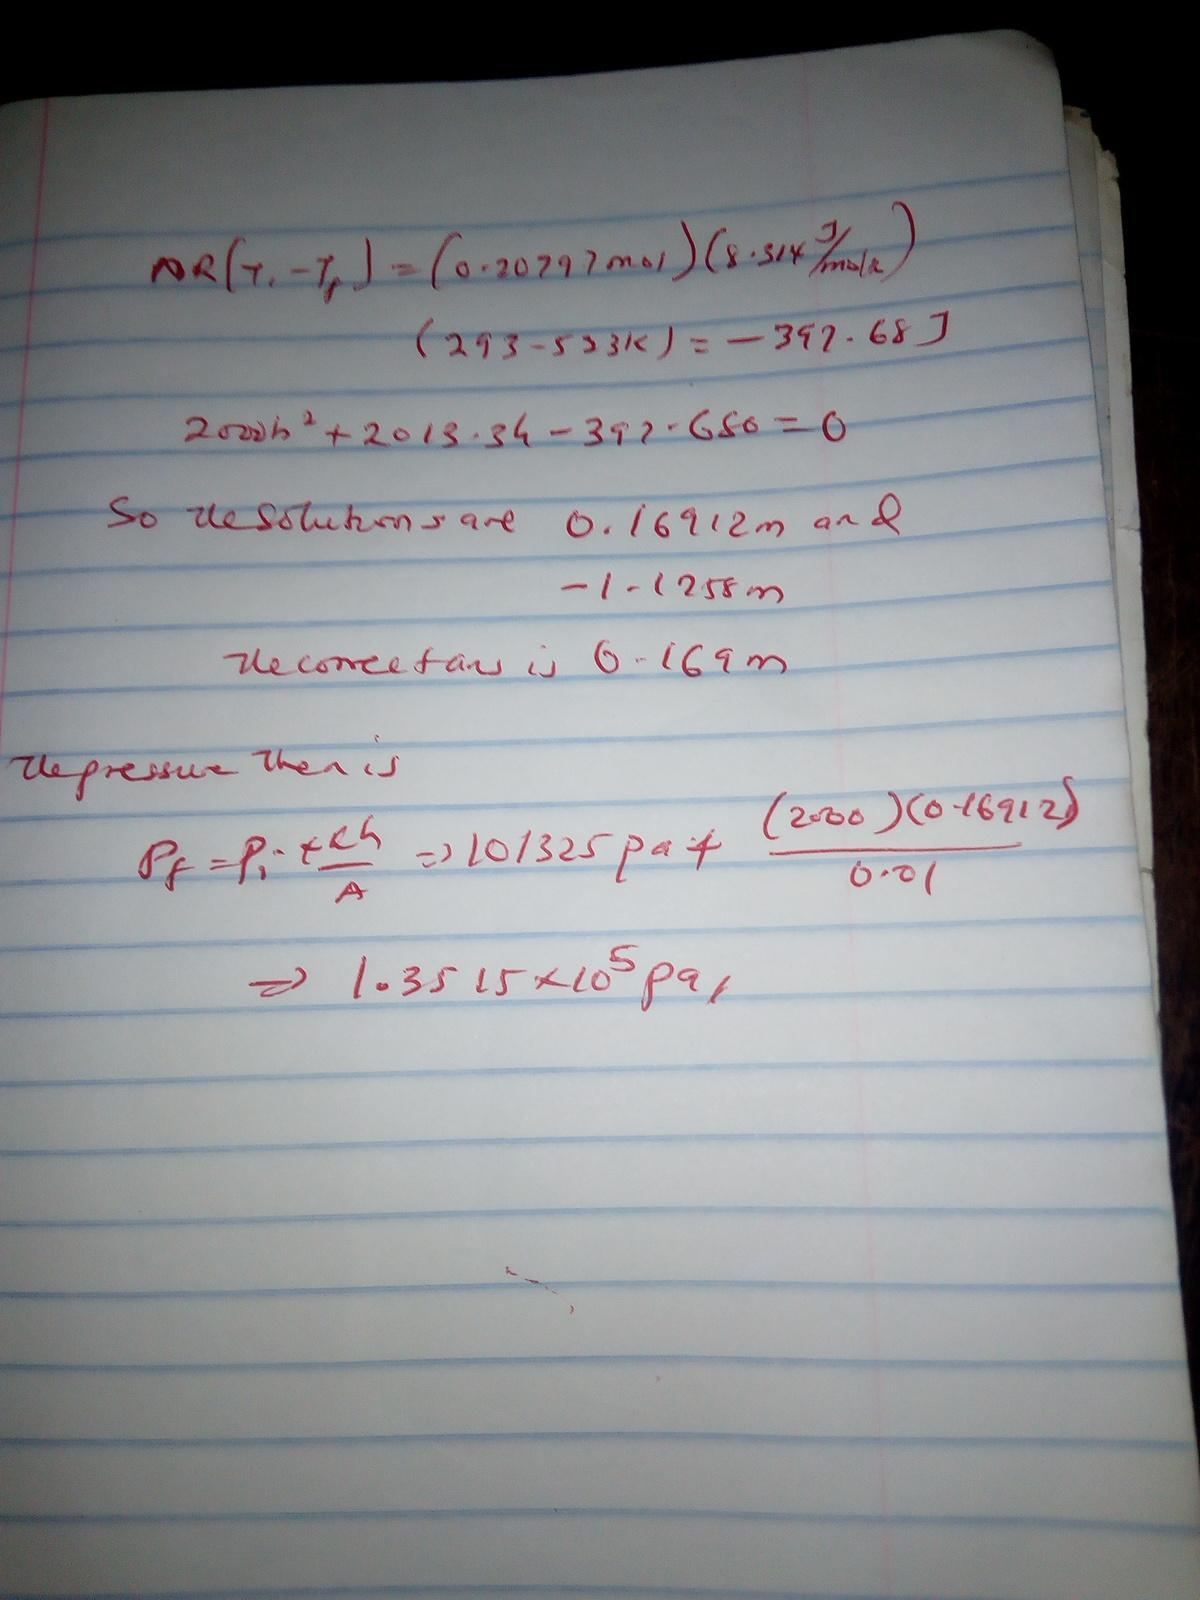 nR(Ti - Tf) = (0.20797mol)(8.314 J/molk)
(293-523K) = -397.68J
2000h² + 2013.3h - 397.680 = 0
So the solutions are 0.16912m and
-1.1258m
the correct ans is 0.169m
the pressure then is
Pf = Pi + kh/A => 101325 pa + (2000)(0.16912)/0.01
=> 1.3515×10⁵ pa,